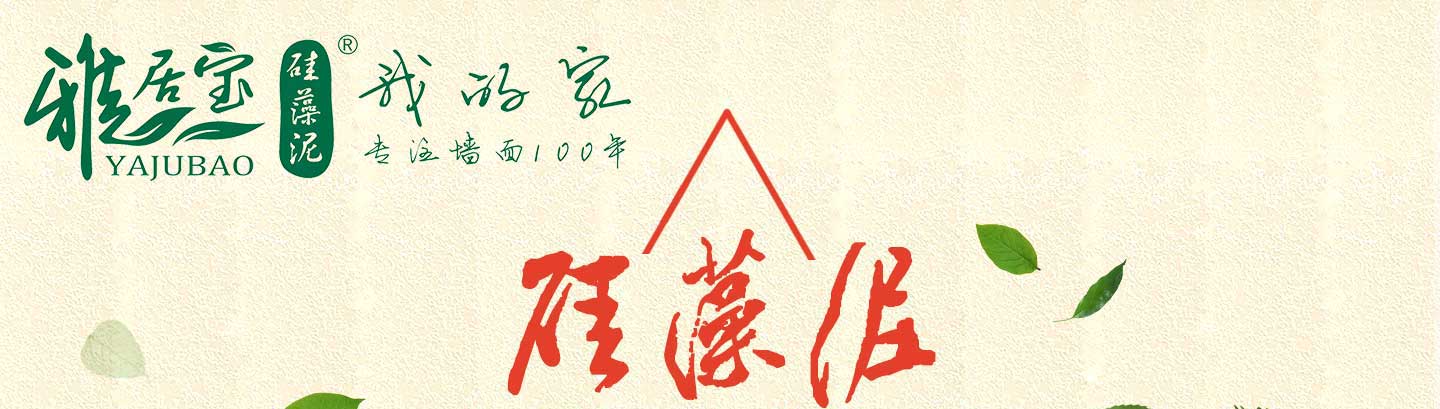 雅居宝
YAJUBAO
硅藻泥
®
我的家
专注墙面100年
硅藻泥